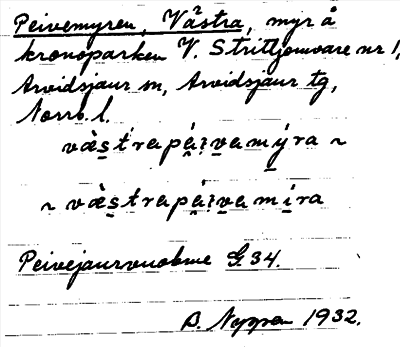 Peivemyren, Västra, myr å
kronoparken V. Strittjomvare nr 1,
Arvidsjaur sn, Arvidsjaur tg,
Norrb. l.
vàs̱t́rapá̱i̯va̱mýra ~
~ vàs̱t́rapá̱i̯va̱mi̱ra
Peivejaurvuobme G. 34.
B. Nyppen 1932.